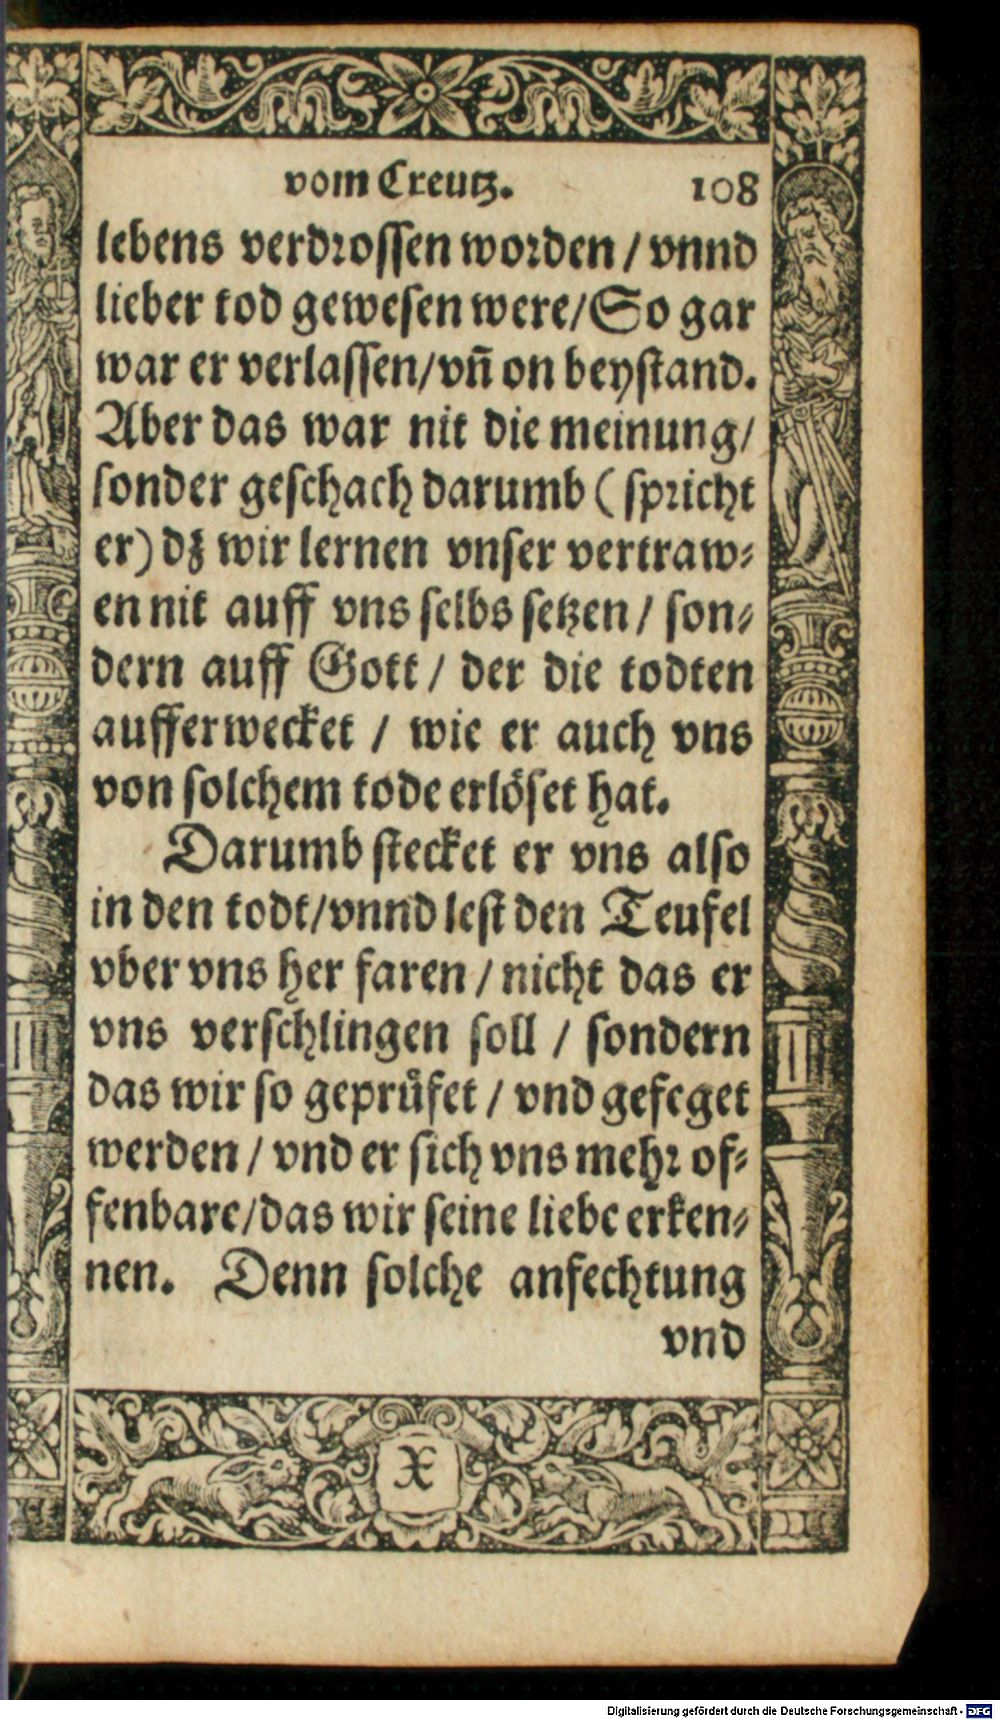 vom Creutz. 108
lebens verdrossen worden / vnnd
lieber tod gewesen were/ So gar
war er verlassen/ vñ on beystand.
Aber das war nit die meinung/
sonder geschach darumb ( spricht
er) dz wir lernen vnser vertraw⸗
en nit auff vns selbs setzen / son⸗
dern auff Gott / der die todten
aufferwecket / wie er auch vns
von solchem tode erlöset hat.
Darumb stecket er vns also
in den todt/ vnnd lest den Teufel
vber vns her faren / nicht das er
vns verschlingen soll / sondern
das wir so geprüfet / vnd gefeget
werden / vnd er sich vns mehr of⸗
fenbare/ das wir seine liebe erken⸗
nen. Denn solche anfechtung
vnd
X
Digitalisierung gefördert durch die Deutsche Forschungsgemeinschaft - DFG